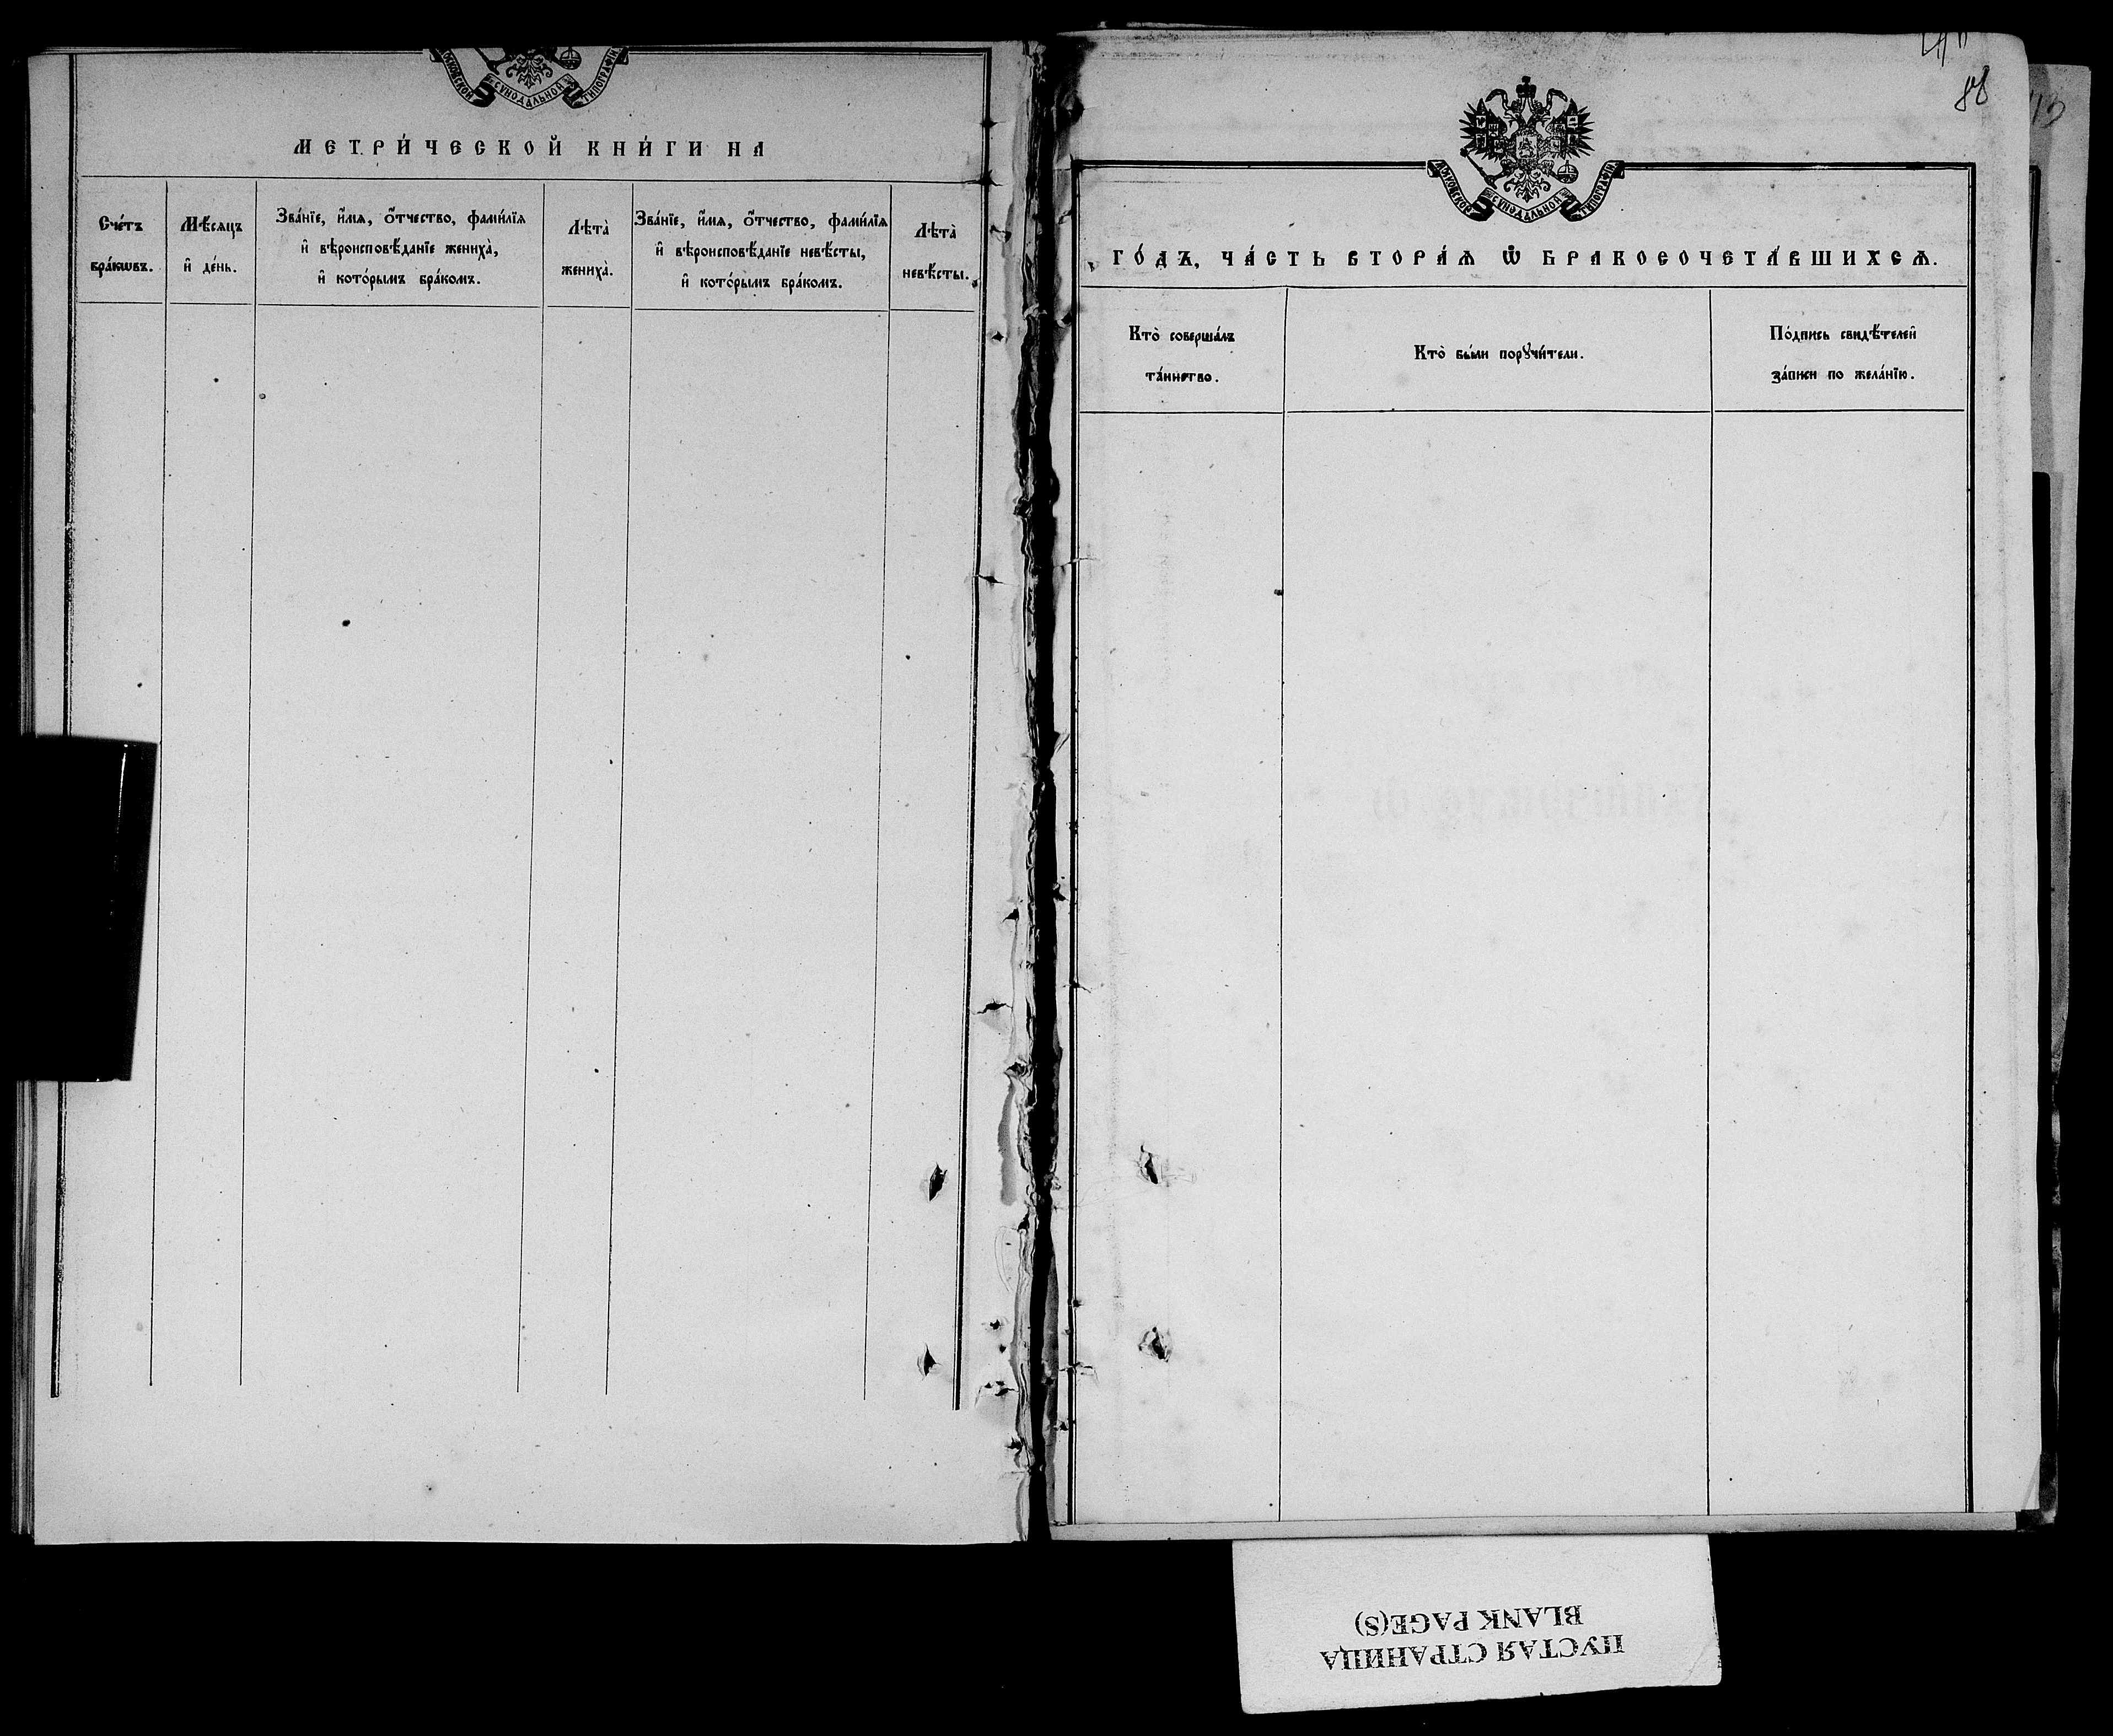 МОСКОВСКОЙ СѴНОДАЛЬНОЙ ТИПОГРАФІИ
МЕТРИ́ЧЕСКОЙ КНИ́ГИ НА
Сче́тъ
бра́кѡвъ.
Мѣ́сяцъ
и҆ де́нь.
Зва́нїе, и҆́мѧ, ѻ҆́тчество, фами́лїѧ
и҆ вѣроисповѣ́данїе жениха̀,
и҆ кото́рымъ бра́комъ.
Лѣта̀
жениха̀.
Зва́нїе, и҆́мѧ, ѻ҆́тчество, фами́лїѧ
и҆ вѣроисповѣ́данїе невѣ́сты,
и҆ кото́рымъ бра́комъ.
Лѣта̀
невѣ́сты.
88
МОСКОВСКОЙ СѴНОДАЛЬНОЙ ТИПОГРАФІИ
ГО́ДЪ, ЧА́СТЬ ВТОРА́Ѧ Ѡ҆ БРАКОСОЧЕТА́ВШИХСѦ.
Кто̀ соверша́лъ
та́инство.
Кто̀ бы́ли порꙋчи́тели.
По́дпись свидѣ́телей
за́писи по жела́нїю.
ПУСТАЯ СТРАНИЦА
BLANK PAGE(S)